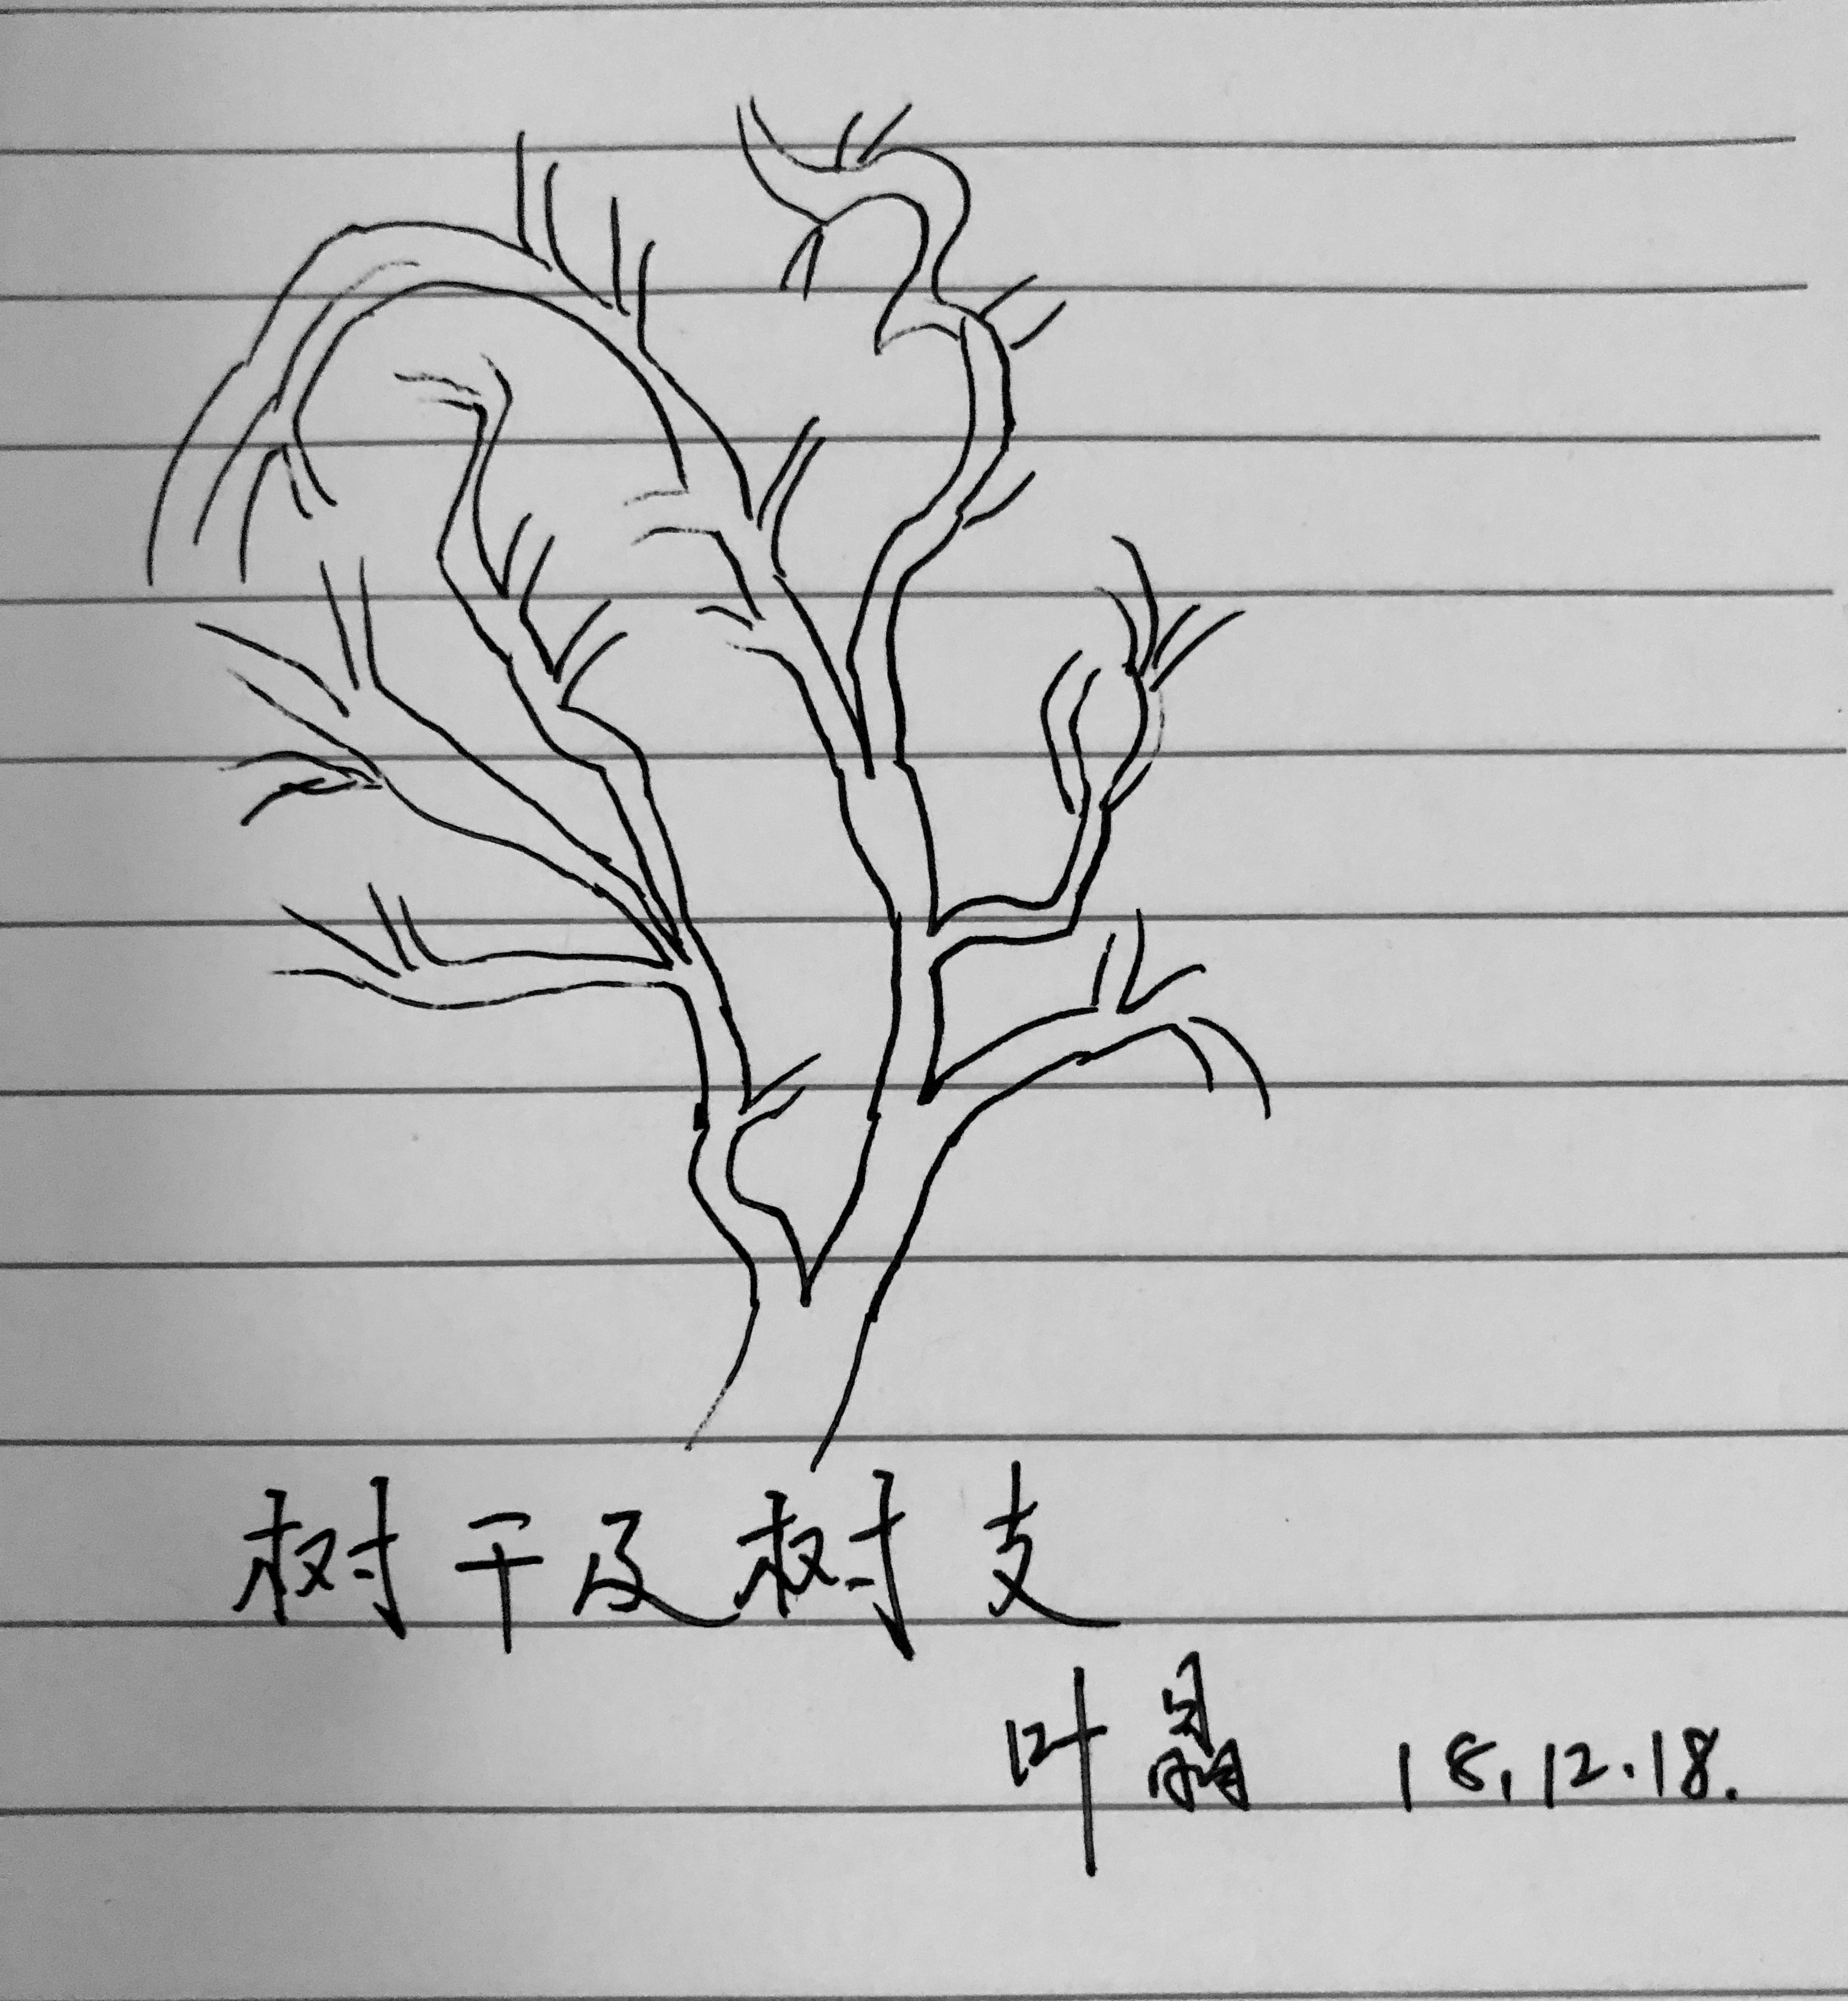 树干及树支
叶晶 18.12.18.